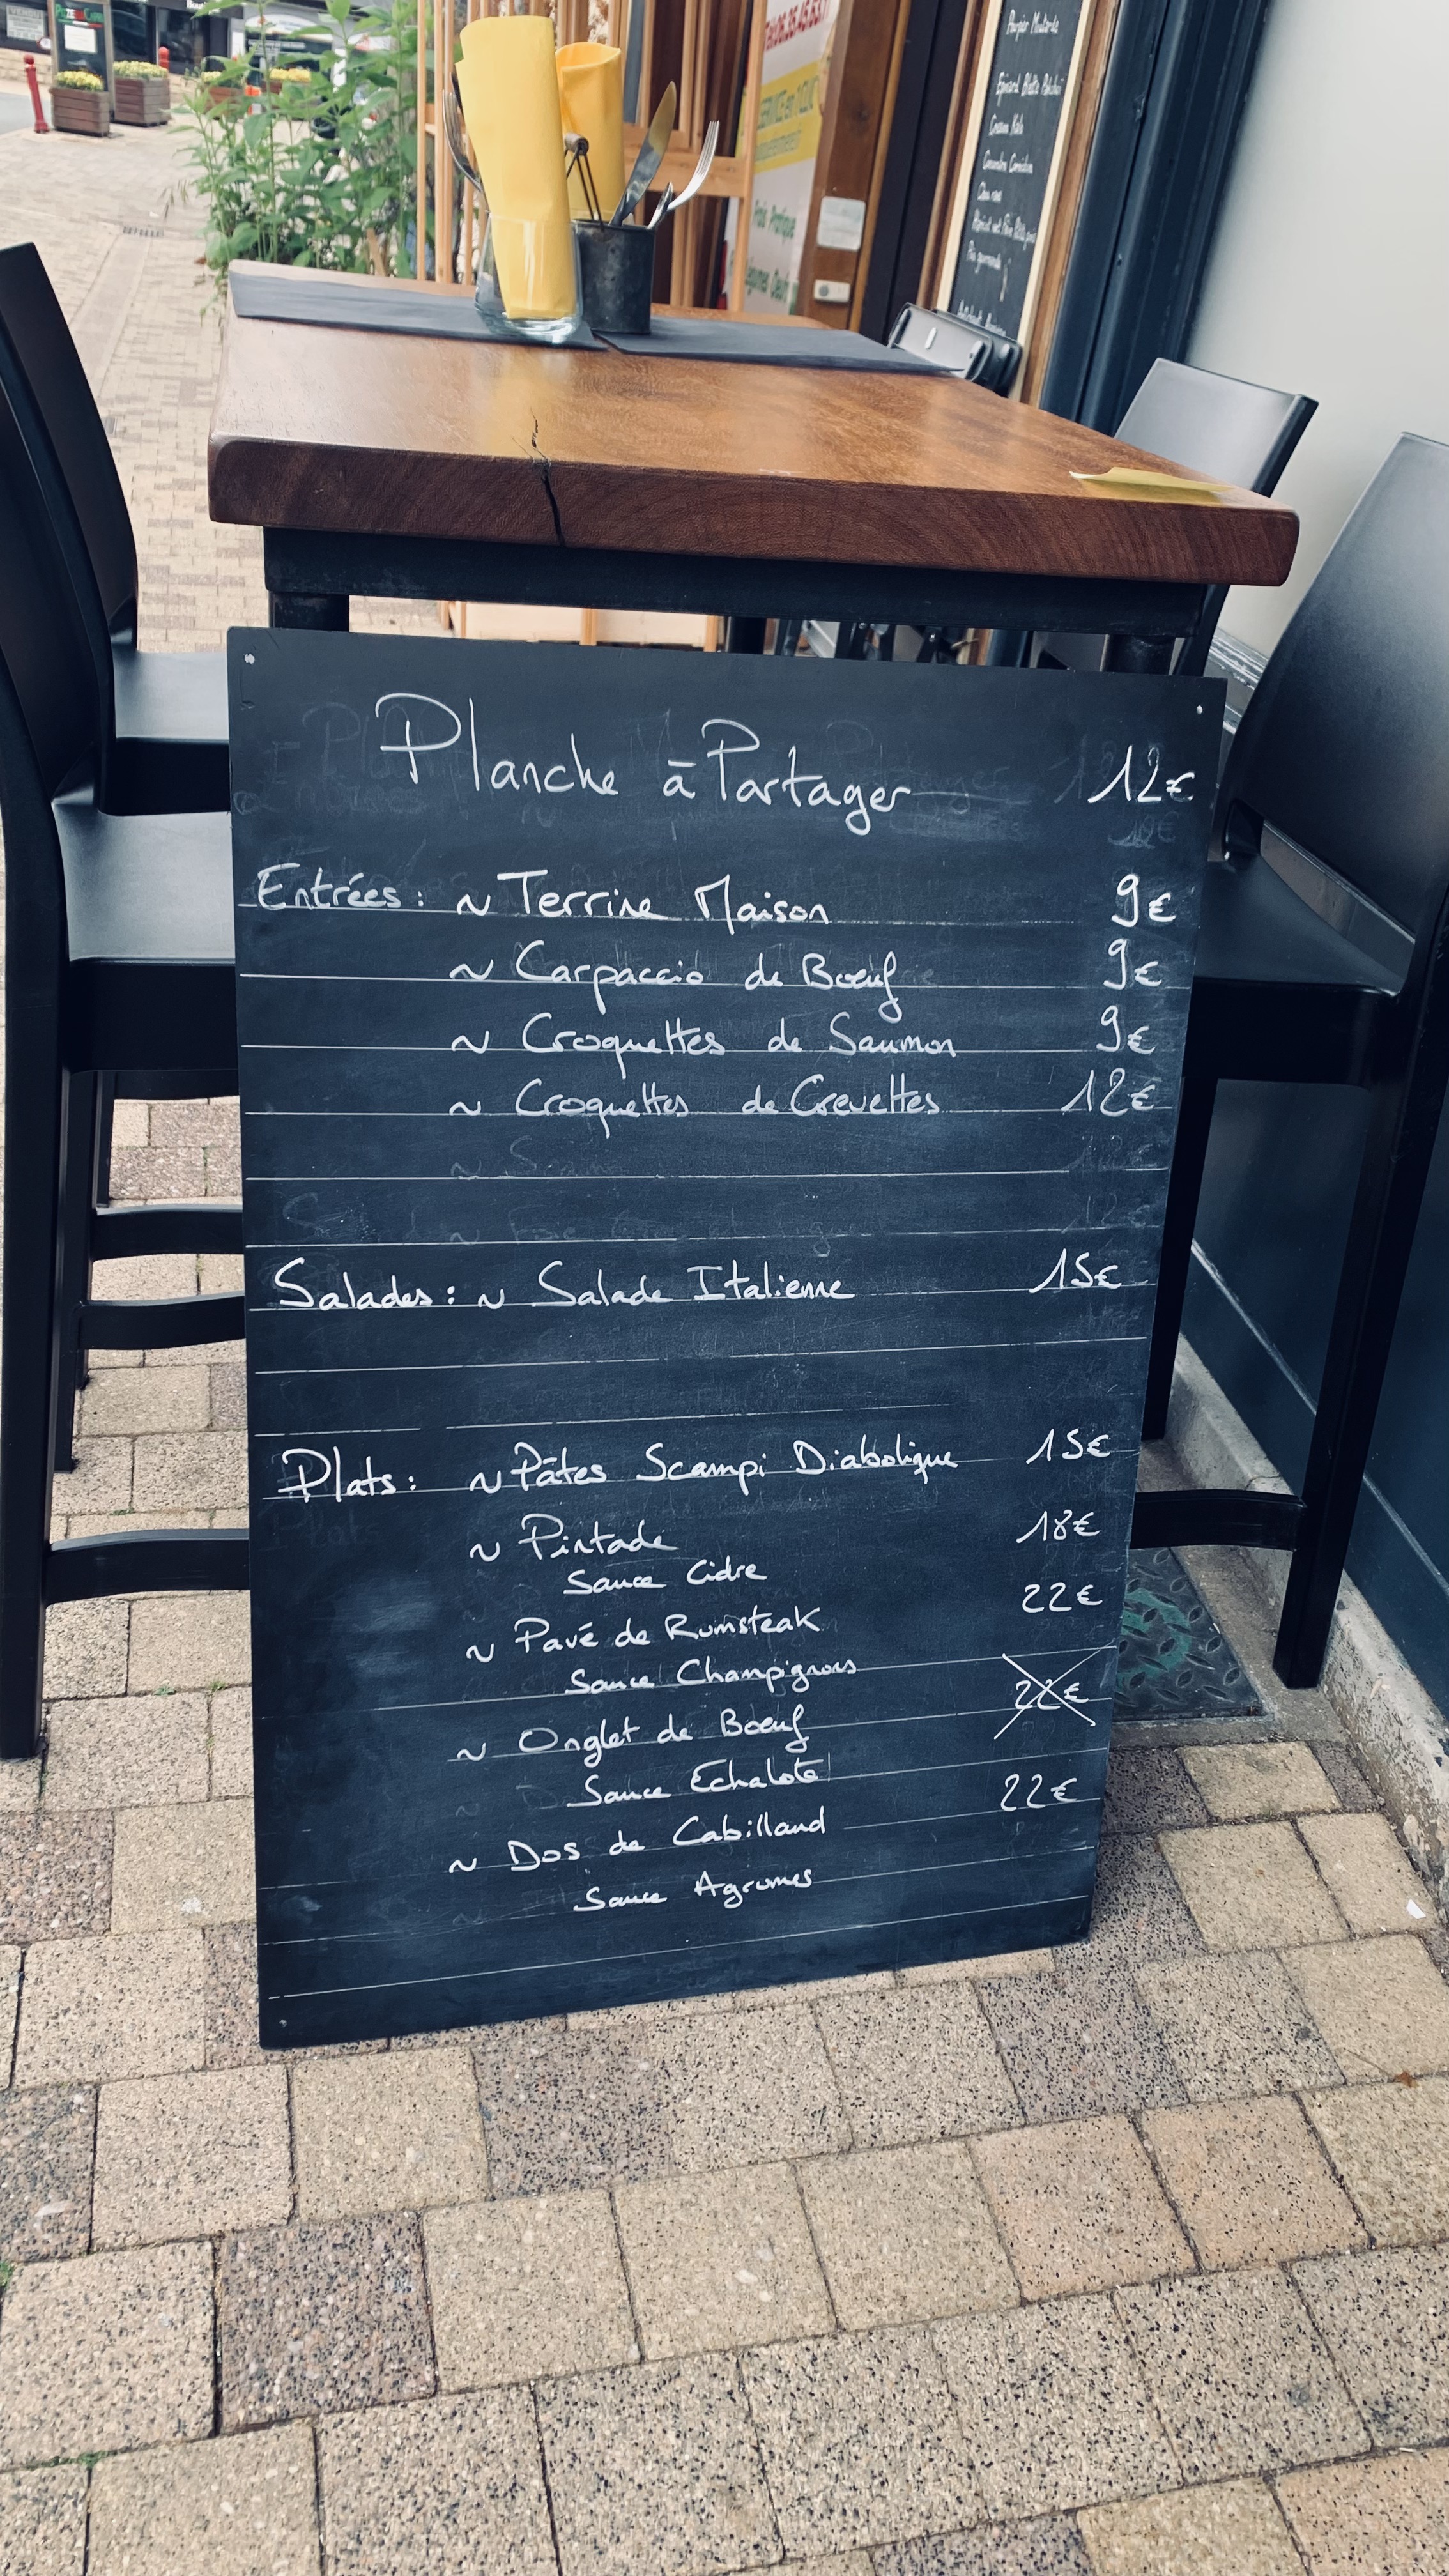 Planche à Partager 12€
Entrées : ~ Terrine Maison 9€
~ Carpaccio de Bœuf 9€
~ Croquettes de Saumon 9€
~ Croquettes de Crevettes 12€
Salades : ~ Salade Italienne 15€
Plats : ~ Pâtes Scampi Diabolique 15€
~ Pintade 18€
Sauce Cidre
~ Pavé de Rumsteak 22€
Sauce Champignons
~ Onglet de Bœuf 22€
Sauce Echalote
~ Dos de Cabillaud 22€
Sauce Agrumes